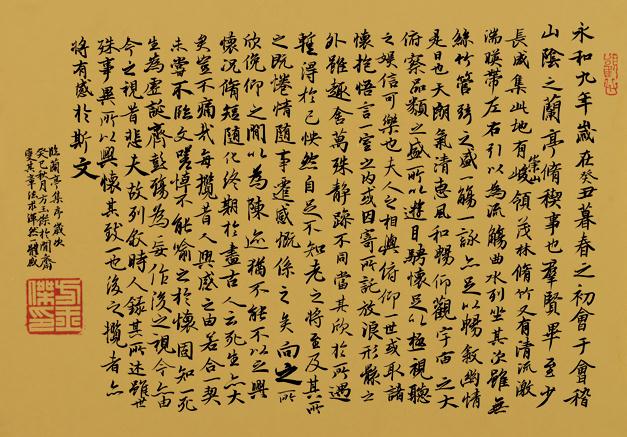 永和九年歲在癸丑暮春之初會于會稽
山陰之蘭亭脩稧事也群賢畢至少
長咸集此地有崇山峻領茂林脩竹又有清流激
湍暎帶左右引以為流觴曲水列坐其次雖無
絲竹管弦之盛一觴一詠亦足以暢敘幽情
是日也天朗氣清惠風和暢仰觀宇宙之大
俯察品類之盛所以遊目騁懷足以極視聽
之娛信可樂也夫人之相與俯仰一世或取諸
懷抱悟言一室之內或因寄所託放浪形骸之
外雖趣舍萬殊靜躁不同當其欣於所遇
蹔得於己怏然自足不知老之將至及其所
之既惓情隨事遷感慨係之矣向之所
欣俛仰之間以為陳迹猶不能不以之興
懷況脩短隨化終期於盡古人云死生亦大
矣豈不痛哉每攬昔人興感之由若合一契
未嘗不臨文嗟悼不能喻之於懷固知一死
生為虛誕齊彭殤為妄作後之視今亦由
今之視昔悲夫故列敘時人錄其所述雖世
殊事異所以興懷其致一也後之攬者亦
將有感於斯文
臨蘭亭集序歲次
癸巳秋月方玉傑於閒齋
重其章法求渾然一體感